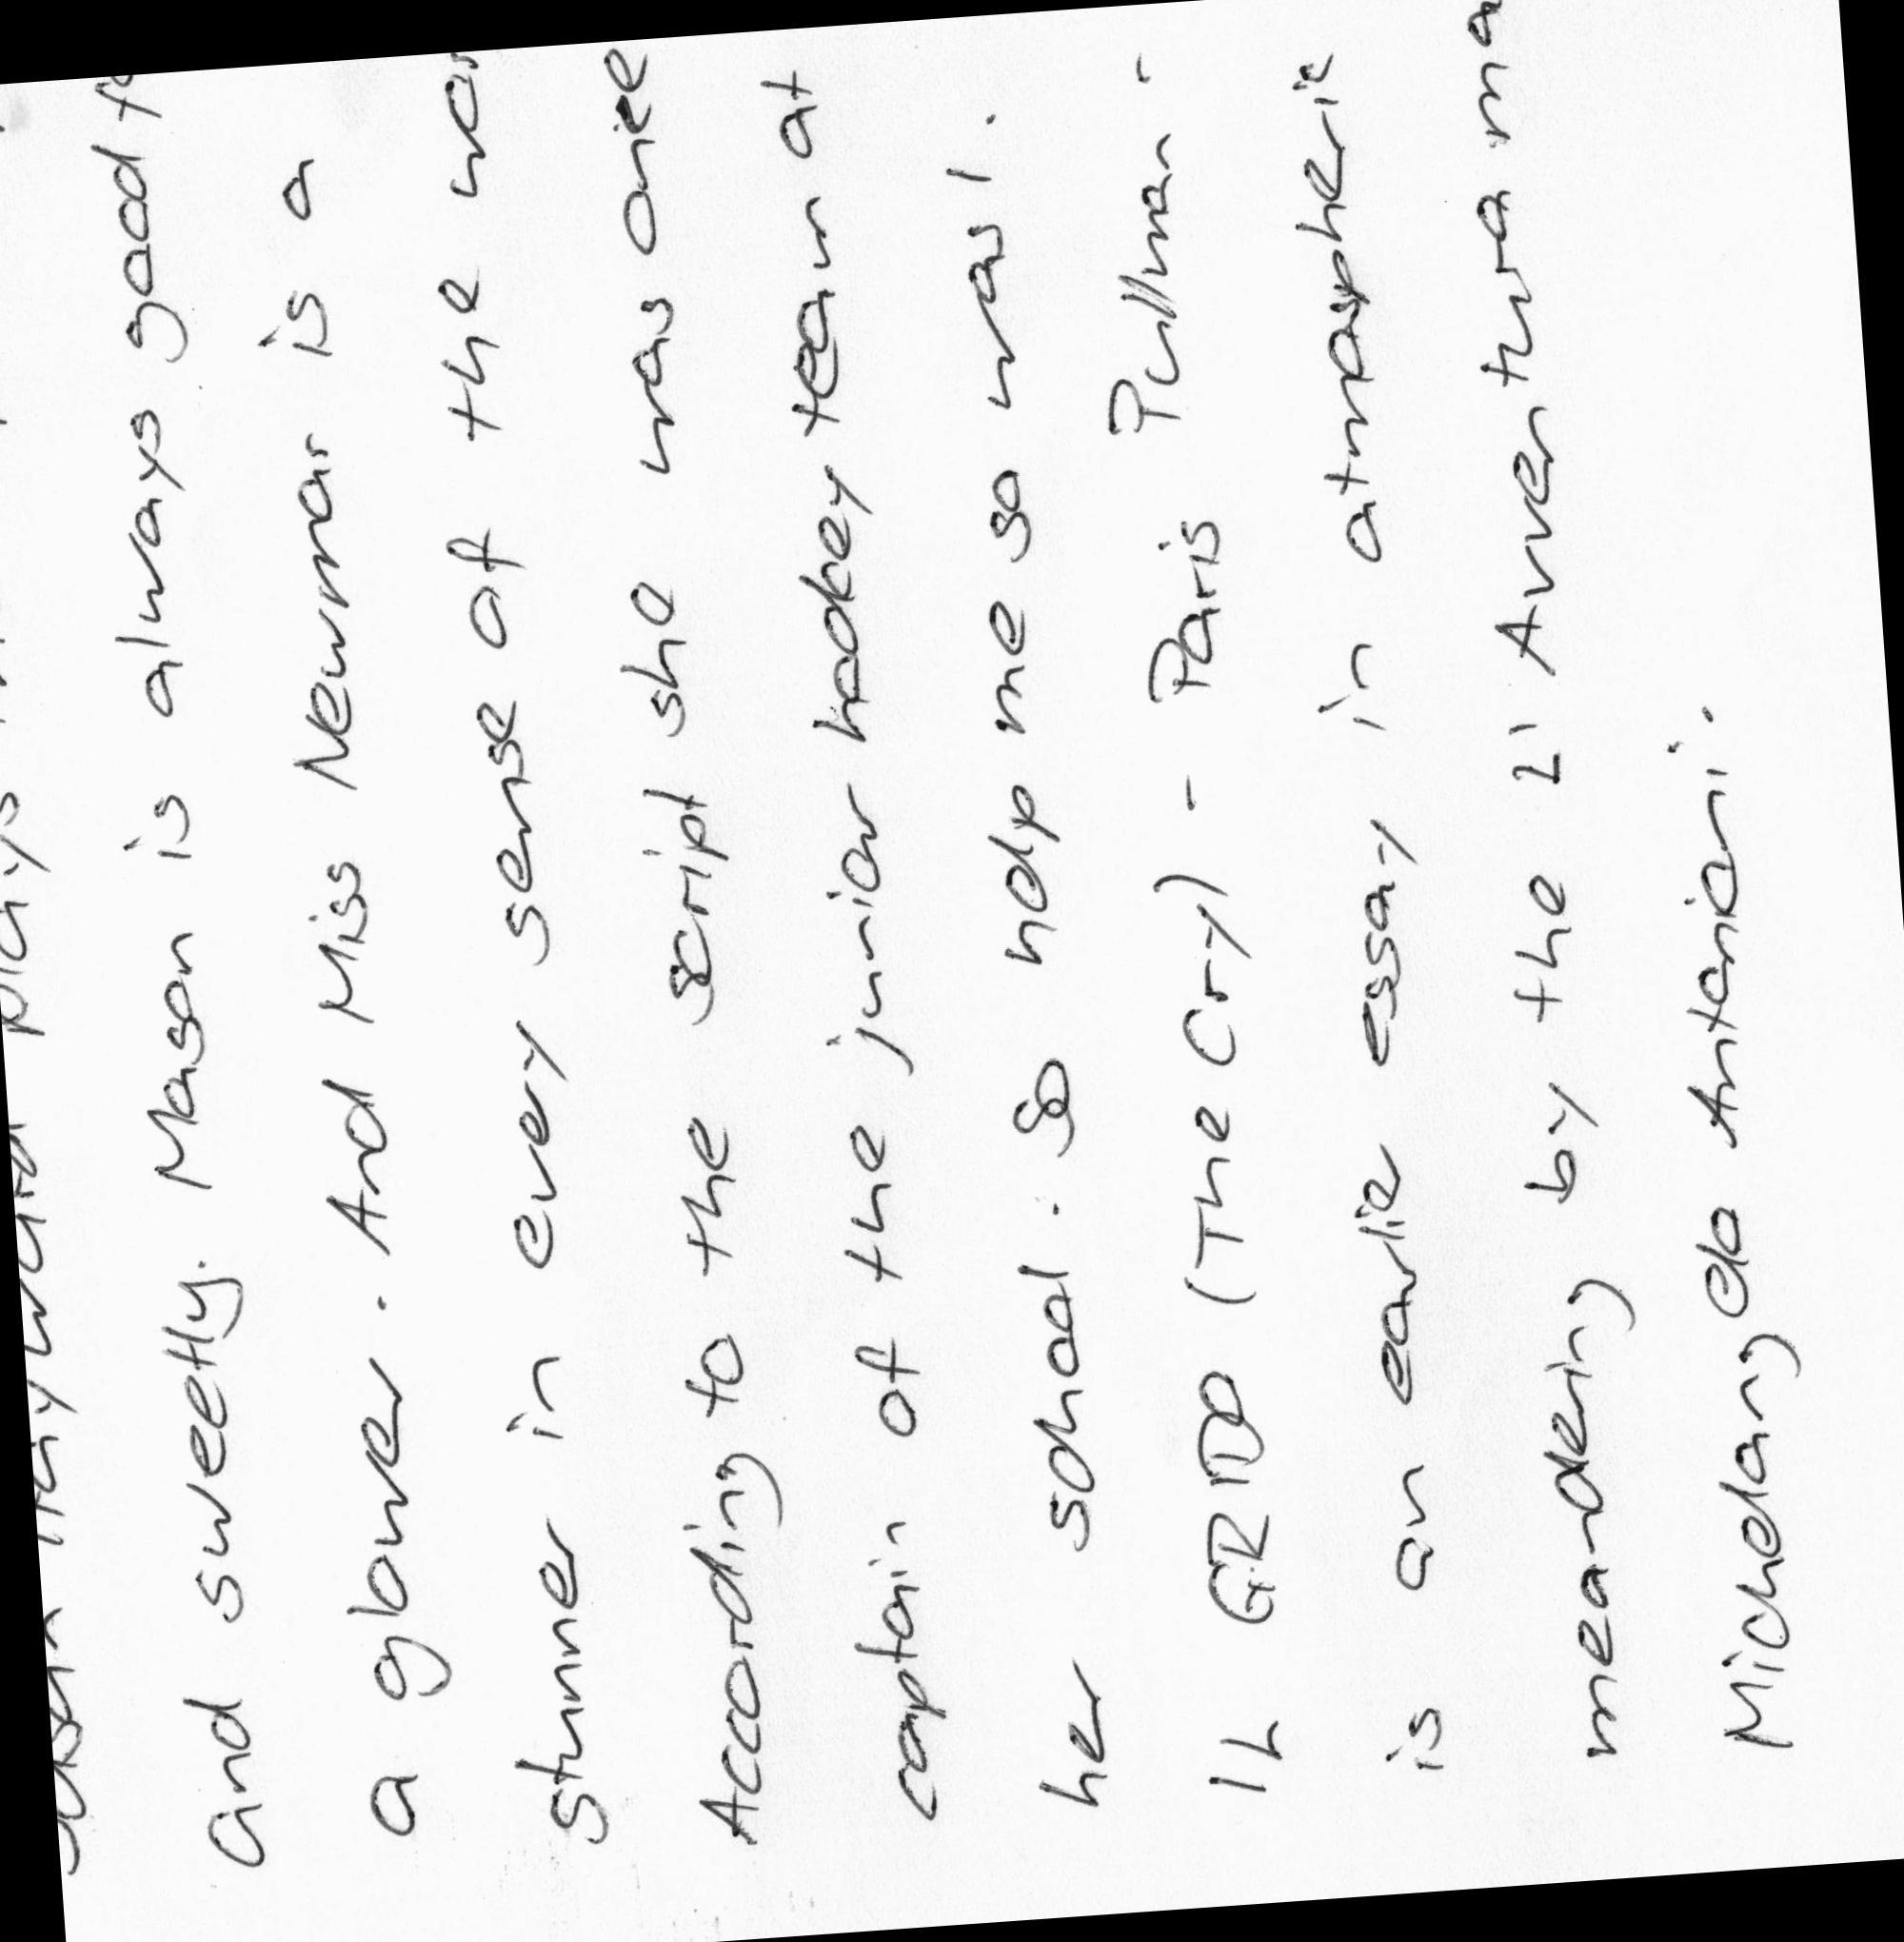 Susan Hayward plays
and sweetly. Mason is always good
a glower. And Miss Newmar is a
stunner in every sense of the
According to the script she was once
captain of the junior hockey team at
her school. So help me so was I.
IL GRIDO (The Cry) - Paris Pullman -
is an earlie essay in atmospheric
meandering by the L'Avventura
Michelangelo Antonieni.